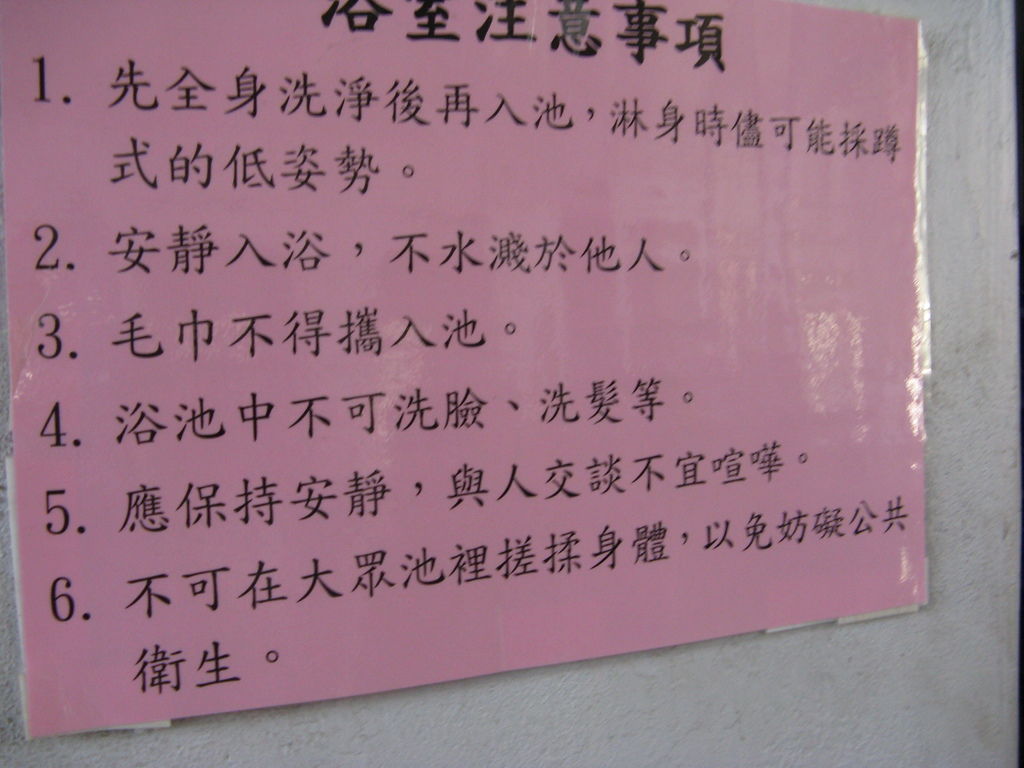 浴室注意事項
1. 先全身洗淨後再入池，淋身時儘可能採蹲
式的低姿勢。
2. 安靜入浴，不水濺於他人。
3. 毛巾不得攜入池。
4. 浴池中不可洗臉、洗髮等。
5. 應保持安靜，與人交談不宜喧嘩。
6. 不可在大眾池裡搓揉身體，以免妨礙公共
衛生。